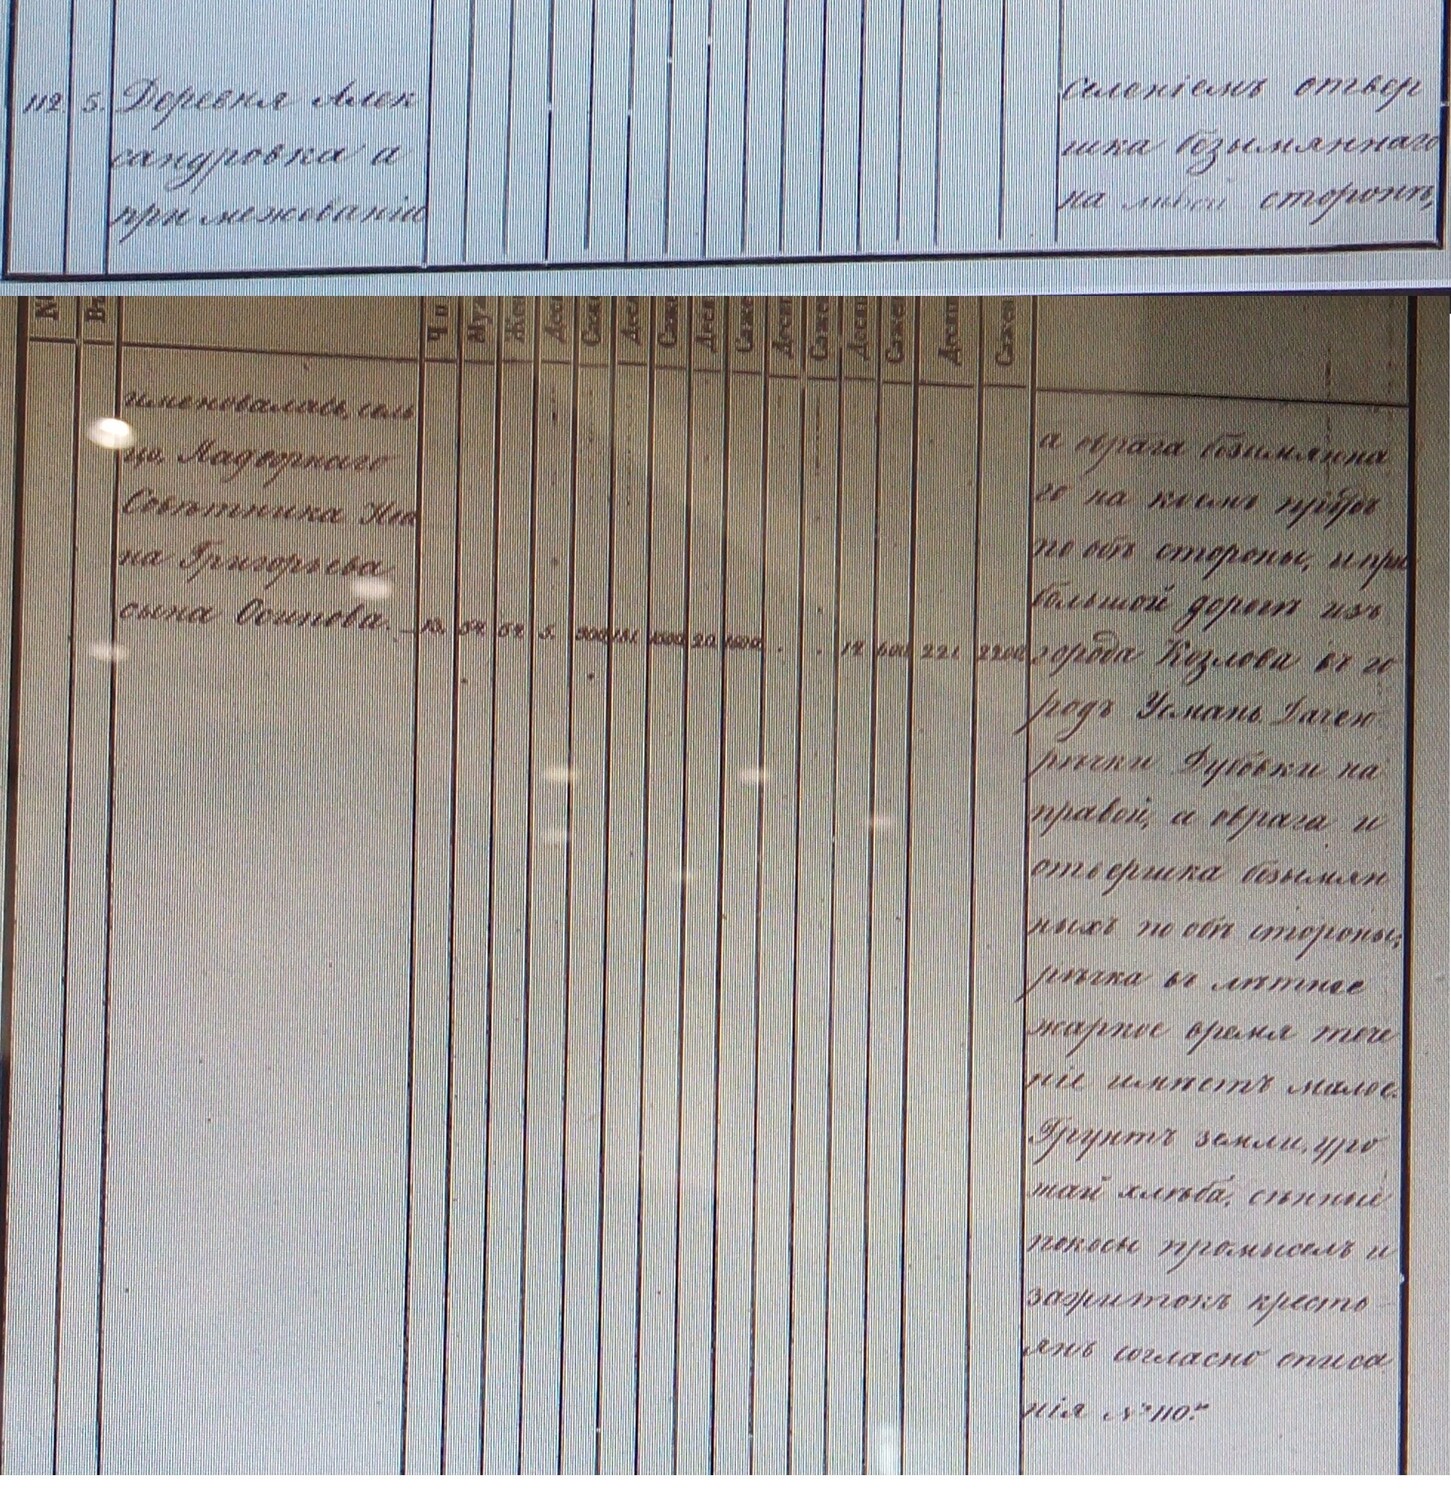 112. 5. Деревня Алек
сандровка а
при межеваніи
селеніемъ отвер
шка безымяннаго
на левой сторонѣ,
Муж Жен Деся Саже Деся Саже Деся Саже Десят Сажен Десят Сажен Десят Сажен
именовалась сель
цо. Надворнаго
Совѣтника Ива
на Григорьева
сына Осипова. 13. 54. 5. 20. 1500. . . 17. 600 221 2200
а оврага безимянна
го на коемъ прудъ
по обѣ стороны, и при
большой дорогѣ изъ
города Козлова въ го
родъ Усмань. Дачею
рѣчки Дубовки на
правой, а оврага и
отвершка безымян
ныхъ по обѣ стороны,
рѣчка въ лѣтнее
жаркое время тече
ніе имѣетъ малое.
Грунтъ земли, уро
жай хлѣба, сѣнные
покосы промыселъ и
зажитокъ кресть
янъ согласно описа
нія № 110.